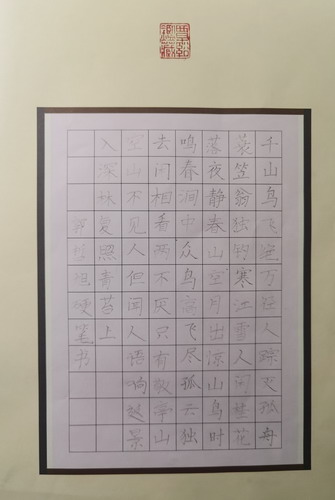 千山鸟飞绝万径人踪灭孤舟
蓑笠翁独钓寒江雪人闲桂花
落夜静春山空月出惊山鸟时
鸣春涧中众鸟高飞尽孤云独
去闲相看两不厌只有敬亭山
空山不见人但闻人语响返景
入深林复照青苔上
硬笔书